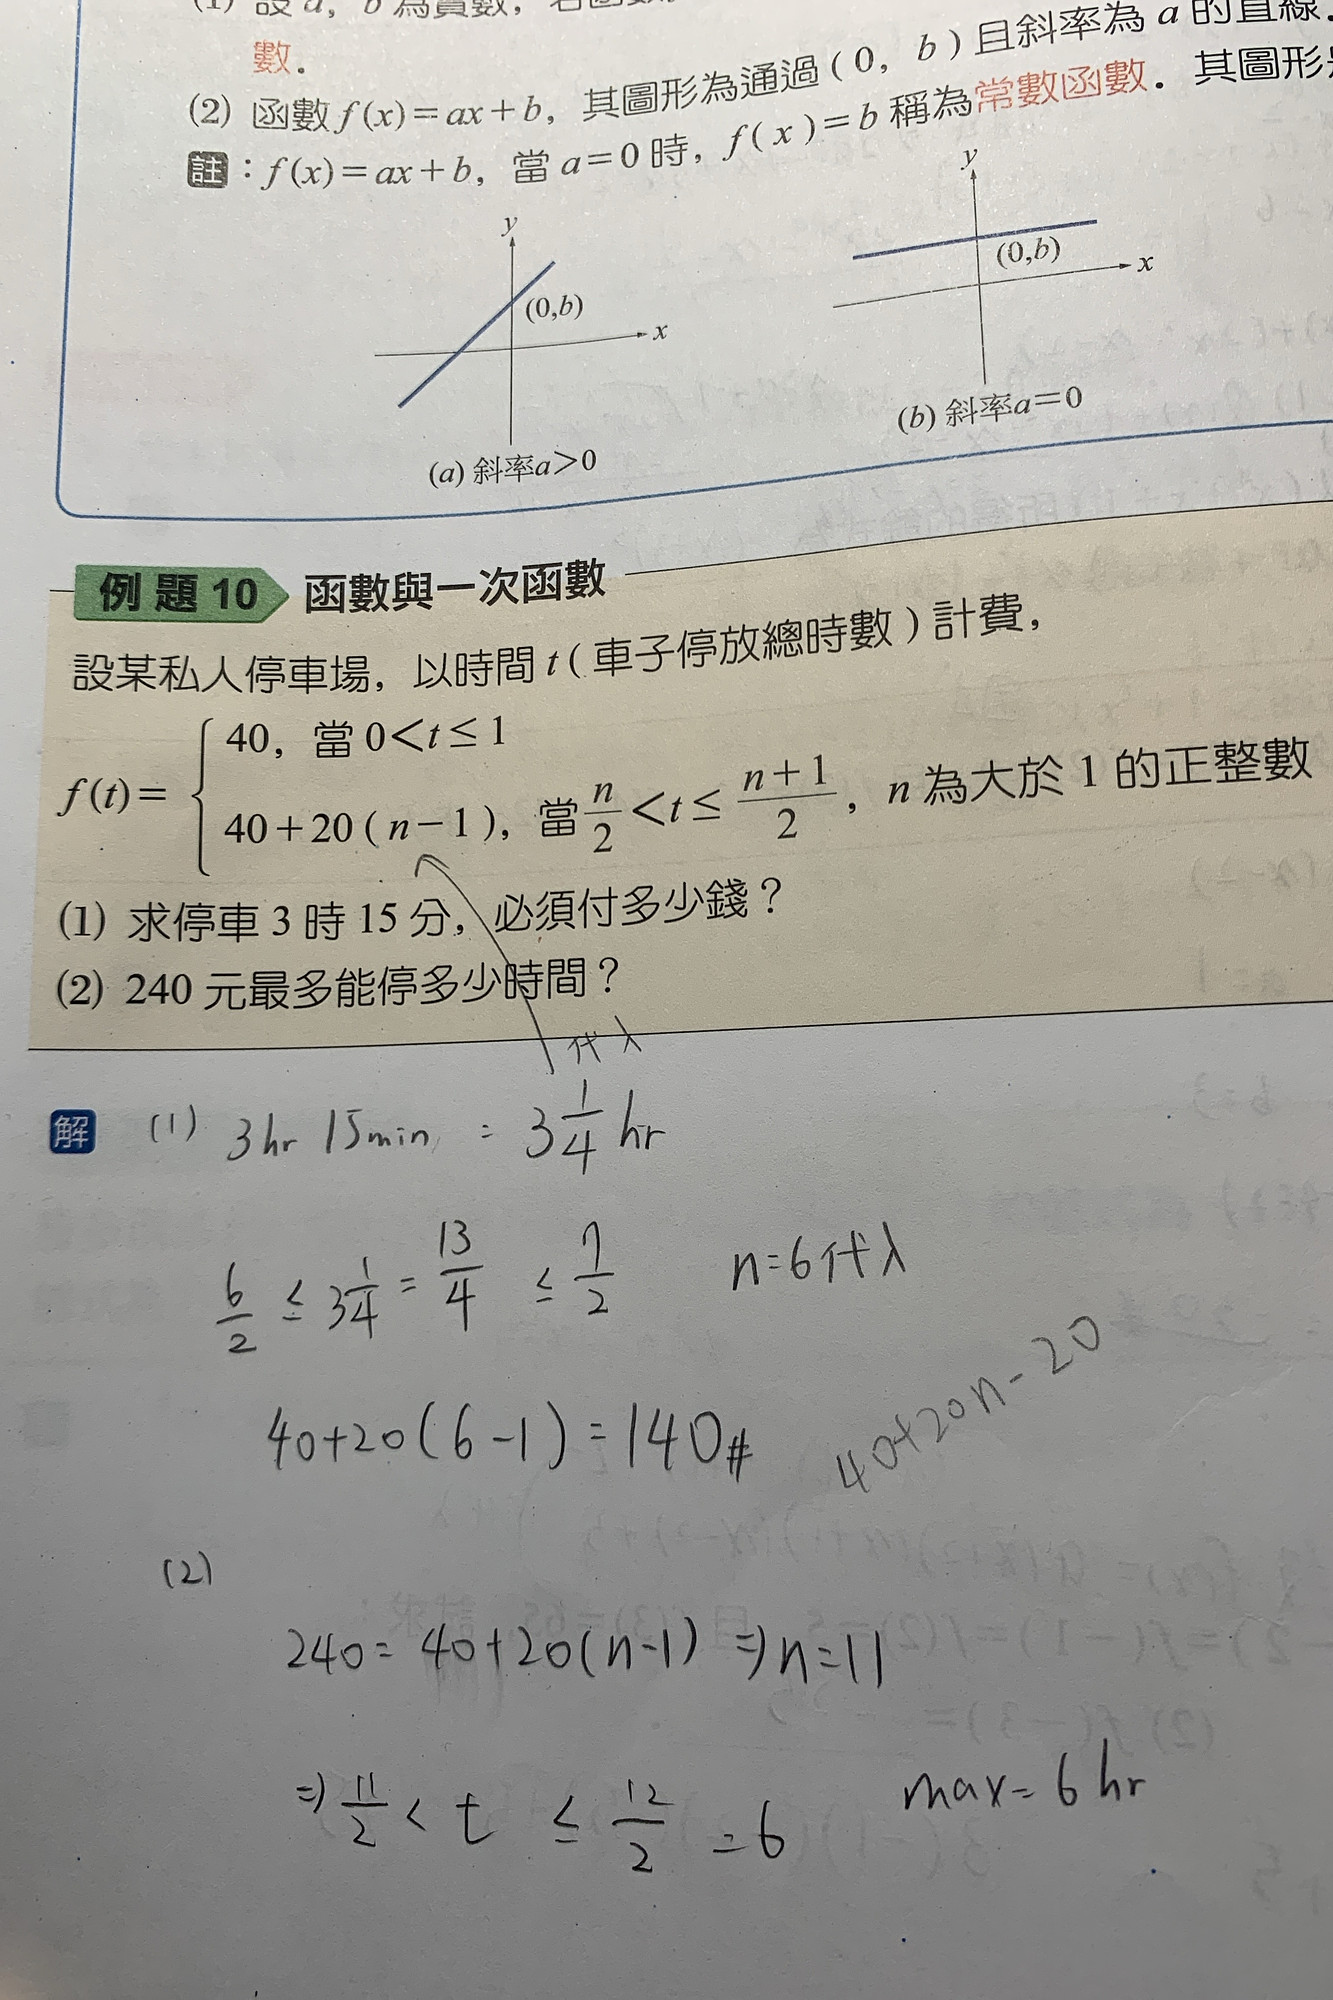 (1) 設 a, b 為實數,
數.
(2) 函數 f(x)=ax+b, 其圖形為通過(0, b)且斜率為 a 的直線.
註:f(x)=ax+b, 當 a=0 時, f(x)=b 稱為常數函數. 其圖形
y
(0,b)
x
(a) 斜率a>0
y
(0,b)
x
(b) 斜率a=0
例題10 函數與一次函數
設某私人停車場, 以時間 t(車子停放總時數)計費,
f(t)= { 40, 當 0<t≤1
40+20(n-1), 當 n/2 <t≤ (n+1)/2, n 為大於 1 的正整數
(1) 求停車 3 時 15 分, 必須付多少錢?
(2) 240 元最多能停多少時間?
代入
解 (1) 3hr 15min = 3 1/4 hr
6/2 ≤ 3 1/4 = 13/4 ≤ 7/2 n=6代入
40+20(6-1)=140#
40+20n-20
(2)
240=40+20(n-1) ⇒n=11
⇒ 11/2 < t ≤ 12/2 =6 max=6hr